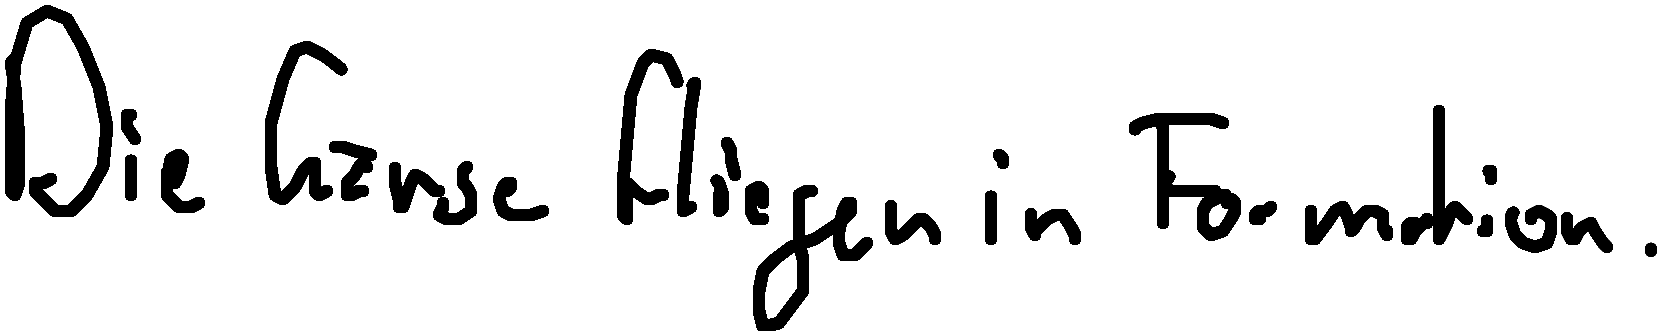 Die Gänse fliegen in Formation.